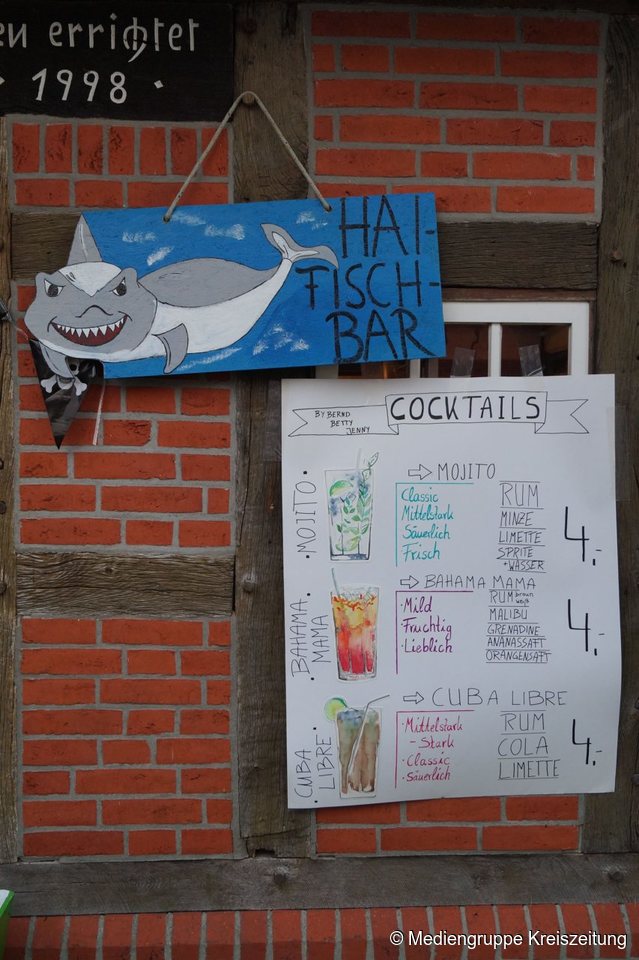 en errichtet
· 1998 ·
HAI-
FISCH-
BAR
BY BERND
BETTY
JENNY
COCKTAILS
MOJITO
MOJITO
Classic
Mittelstark
Säuerlich
Frisch
RUM
MINZE
LIMETTE
SPRITE
+ WASSER
4,-
BAHAMA MAMA
BAHAMA
MAMA
· Mild
Fruchtig
· Lieblich
RUM braun
weiß
MALIBU
GRENADINE
ANANASSAFT
ORANGENSAFT
4,-
CUBA LIBRE
CUBA
LIBRE
· Mittelstark
- Stark
· Classic
· Säuerlich
RUM
COLA
LIMETTE
4,-
© Mediengruppe Kreiszeitung